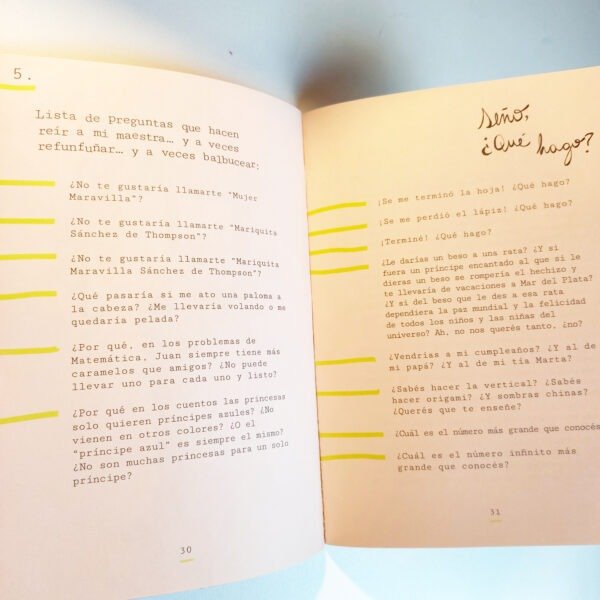 5.
Lista de preguntas que hacen
reír a mi maestra… y a veces
refunfuñar… y a veces balbucear:
¿No te gustaría llamarte "Mujer
Maravilla"?
¿No te gustaría llamarte "Mariquita
Sánchez de Thompson"?
¿No te gustaría llamarte "Mariquita
Maravilla Sánchez de Thompson"?
¿Qué pasaría si me ato una paloma a
la cabeza? ¿Me llevaría volando o me
quedaría pelada?
¿Por qué, en los problemas de
Matemática, Juan siempre tiene más
caramelos que amigos? ¿No puede
llevar uno para cada uno y listo?
¿Por qué en los cuentos las princesas
solo quieren príncipes azules? ¿No
vienen en otros colores? ¿O el
"príncipe azul" es siempre el mismo?
¿No son muchas princesas para un solo
príncipe?
30
Seño,
¿Qué hago?
¡Se me terminó la hoja! ¿Qué hago?
¡Se me perdió el lápiz! ¿Qué hago?
¡Terminé! ¿Qué hago?
¿Le darías un beso a una rata? ¿Y si
fuera un príncipe encantado al que si le
dieras un beso se rompería el hechizo y
te llevaría de vacaciones a Mar del Plata?
¿Y si del beso que le des a esa rata
dependiera la paz mundial y la felicidad
de todos los niños y las niñas del
universo? Ah, no nos querés tanto, ¿no?
¿Vendrías a mi cumpleaños? ¿Y al de
mi papá? ¿Y al de mi tía Marta?
¿Sabés hacer la vertical? ¿Sabés
hacer origami? ¿Y sombras chinas?
¿Querés que te enseñe?
¿Cuál es el número más grande que conocés
¿Cuál es el número infinito más
grande que conocés?
31